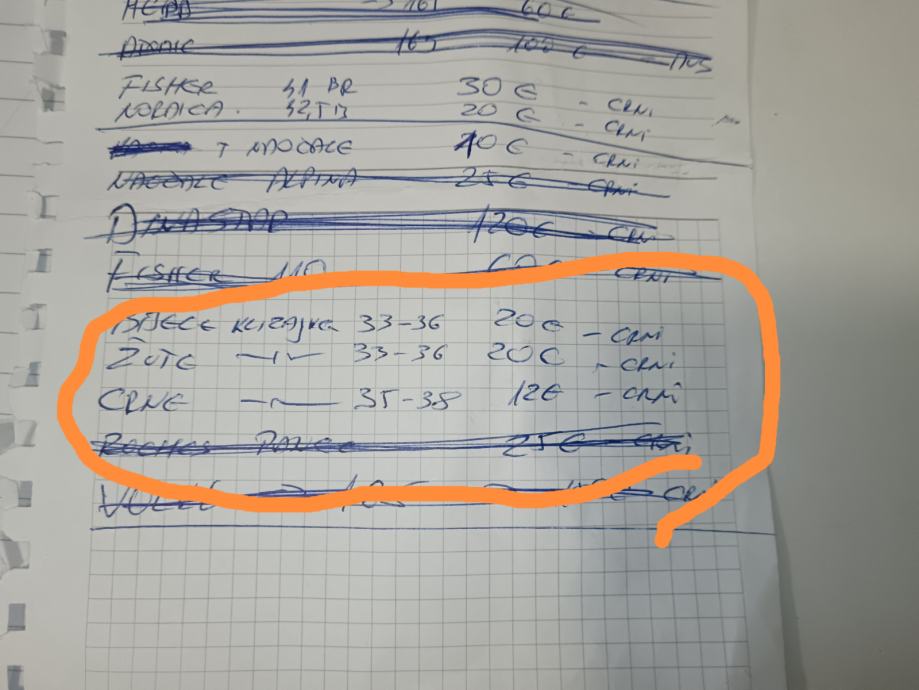 HEAD → 161 60€
ATOMIC 165 100€
FISHER 41 BR 30€ - CRNi
NORDICA. 42, 20€ - CRNi
T NAOČALE 10€ - CRNi
NAOČALE ALPINA 25€ - CRNi
DYNASTAR 120€ - CRNi
FISHER 110 60€ CRNi
BIJELE KLIZAJKE 33-36 20€ - CRNi
ŽUTE —ıı— 33-36 20€ - CRNi
CRNE —ıı— 35-38 12€ - CRNi
25€ CRNi
CRNi